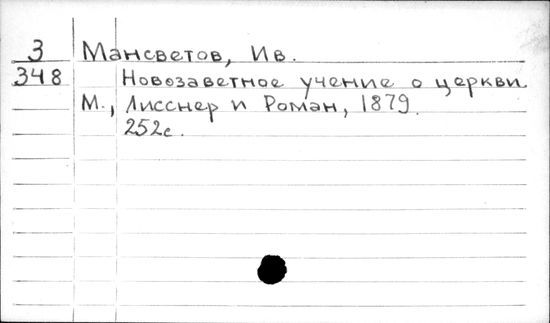 З Мансветов, Ив.
348 Новозаветное учение о церкви
М., Лисснер и Роман, 1879.
252с.